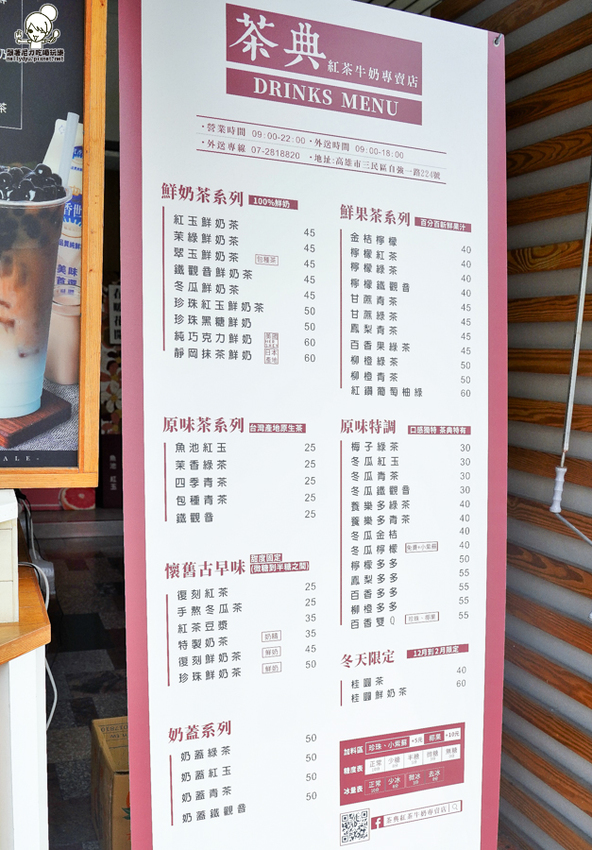 跟著尼力吃喝玩樂
茶典
紅茶牛奶專賣店
DRINKS MENU
・營業時間 09:00-22:00・外送時間 09:00-18:00
・外送專線 07-2818820 ・地址:高雄市三民區自強一路224號
鮮奶茶系列 100%鮮奶
紅玉鮮奶茶 45
茉綠鮮奶茶 45
翠玉鮮奶茶 包種茶 45
鐵觀音鮮奶茶 45
冬瓜鮮奶茶 45
珍珠紅玉鮮奶茶 50
珍珠黑糖鮮奶 50
純巧克力鮮奶 60
靜岡抹茶鮮奶 日本產地 60
原味茶系列 台灣產地原生茶
魚池紅玉 25
茉香綠茶 25
四季青茶 25
包種青茶 25
鐵觀音 25
懷舊古早味 甜度固定(微糖到半糖之間)
復刻紅茶 25
手熬冬瓜茶 25
紅茶豆漿 35
特製奶茶 奶精 35
復刻鮮奶茶 鮮奶 45
珍珠鮮奶茶 鮮奶 50
奶蓋系列
奶蓋綠茶 50
奶蓋紅玉 50
奶蓋青茶 50
奶蓋鐵觀音 50
鮮果茶系列 百分百新鮮果汁
金桔檸檬 40
檸檬紅茶 40
檸檬綠茶 40
檸檬鐵觀音 40
甘蔗青茶 45
甘蔗綠茶 45
鳳梨青茶 45
百香果綠茶 45
柳橙綠茶 50
柳橙青茶 50
紅鑽葡萄柚綠 60
原味特調 口感獨特 茶典特有
梅子綠茶 30
冬瓜紅玉 30
冬瓜青茶 30
冬瓜鐵觀音 30
養樂多綠茶 40
養樂多青茶 40
冬瓜金桔 40
冬瓜檸檬 40
檸檬多多 50
鳳梨多多 55
百香多多 55
柳橙多多 55
百香雙Q 珍珠、椰果 55
冬天限定 12月到2月限定
桂圓茶 40
桂圓鮮奶茶 60
加料區 珍珠、小紫蘇 +5元 椰果 +10元
糖度表 正常 少糖 半糖 微糖 無糖
冰量表 正常 少冰 微冰 去冰
茶典紅茶牛奶專賣店
美味
首選
魚池 紅玉